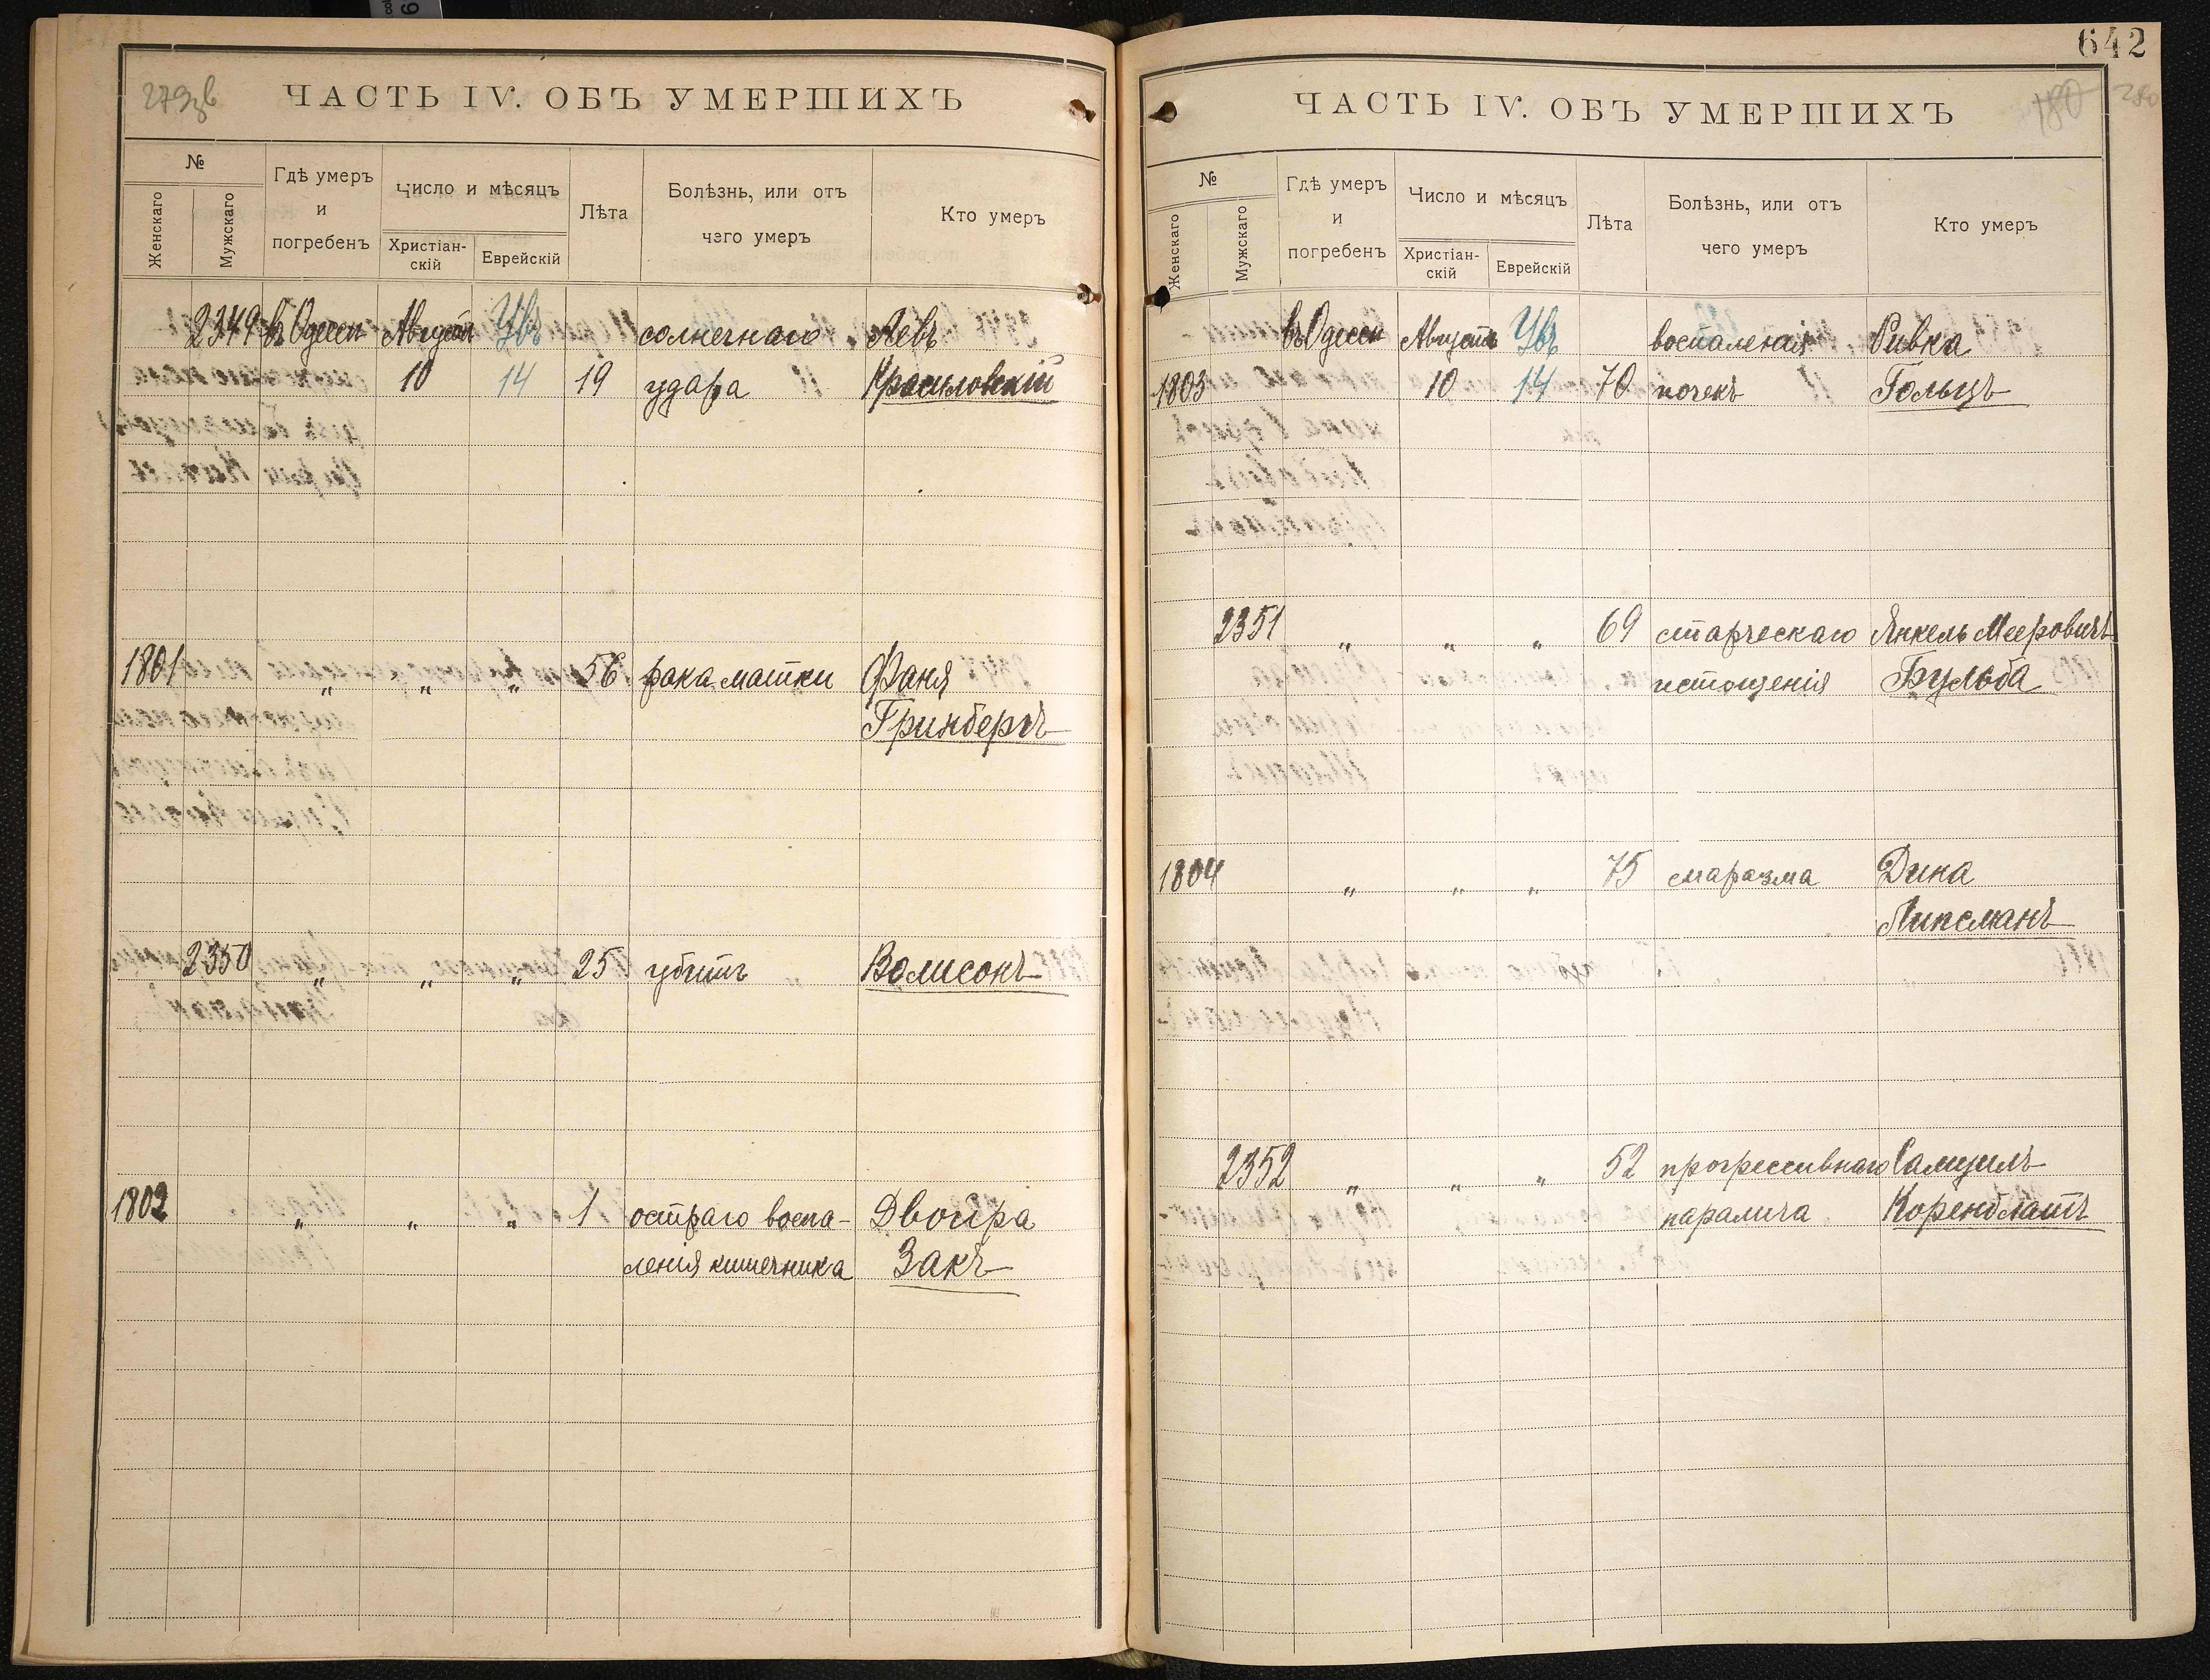 642
279зв
ЧАСТЬ IV. ОБЪ УМЕРШИХЪ
№
Женскаго
Мужскаго
Гдѣ умеръ
и
погребенъ
Число и мѣсяцъ
Христіан-
скій
Еврейскій
Лѣта
Болѣзнь, или отъ
чего умеръ
Кто умеръ
2349 въ Одессѣ Августъ Увъ солнечнаго Левъ
10 14 19 удара Красиловскій
1801 „ „ „ 56 рака матки Фаня
Гринбергъ
2350 „ „ „ 25 убитъ Волисонъ
1802 „ „ „ 1 остраго воспа-
ленія кишечника
Двойра
Закъ
ЧАСТЬ IV. ОБЪ УМЕРШИХЪ
180
280
№
Женскаго
Мужскаго
Гдѣ умеръ
и
погребенъ
Число и мѣсяцъ
Христіан-
скій
Еврейскій
Лѣта
Болѣзнь, или отъ
чего умеръ
Кто умеръ
въ Одессѣ Августъ Увъ воспаленія Ривка
1803 10 14 70 почекъ Гольцъ
2351 „ „ „ 69 старческаго Янкель Мееровичъ
истощенія Бульба
1804 „ „ „ 75 маразма Дина
Липсманъ
2352 „ „ „ 52 прогрессивнаго Самуилъ
паралича Коренблатъ